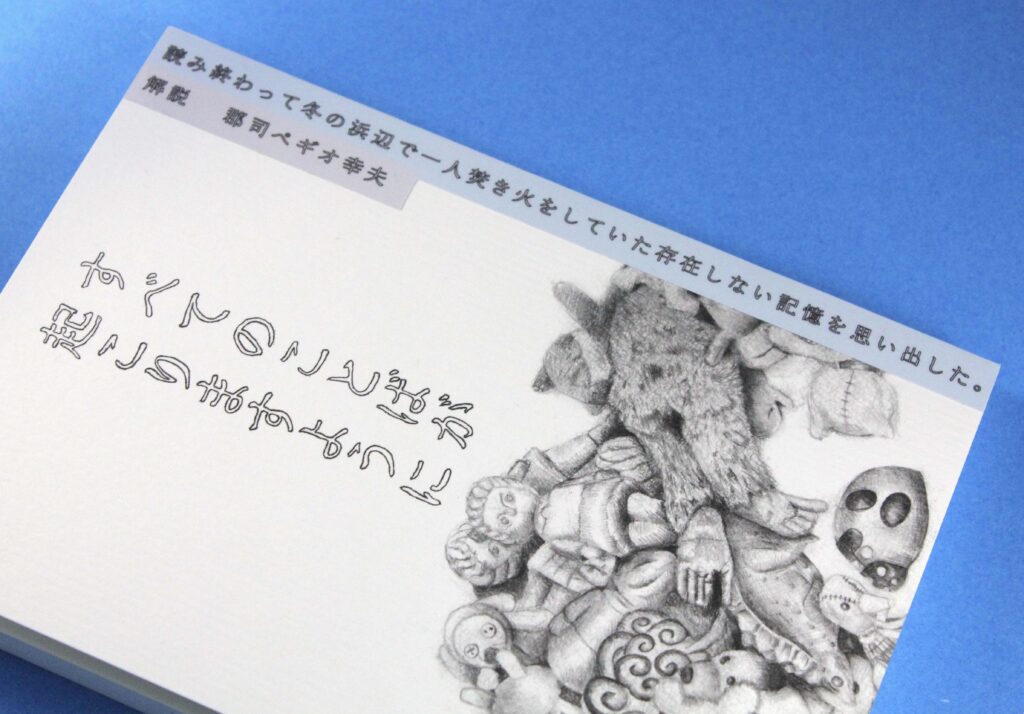 読み終わって冬の浜辺で一人焚き火をしていた存在しない記憶を思い出した。
解説　郡司ペギオ幸夫
すべてのことばが
起こりますように